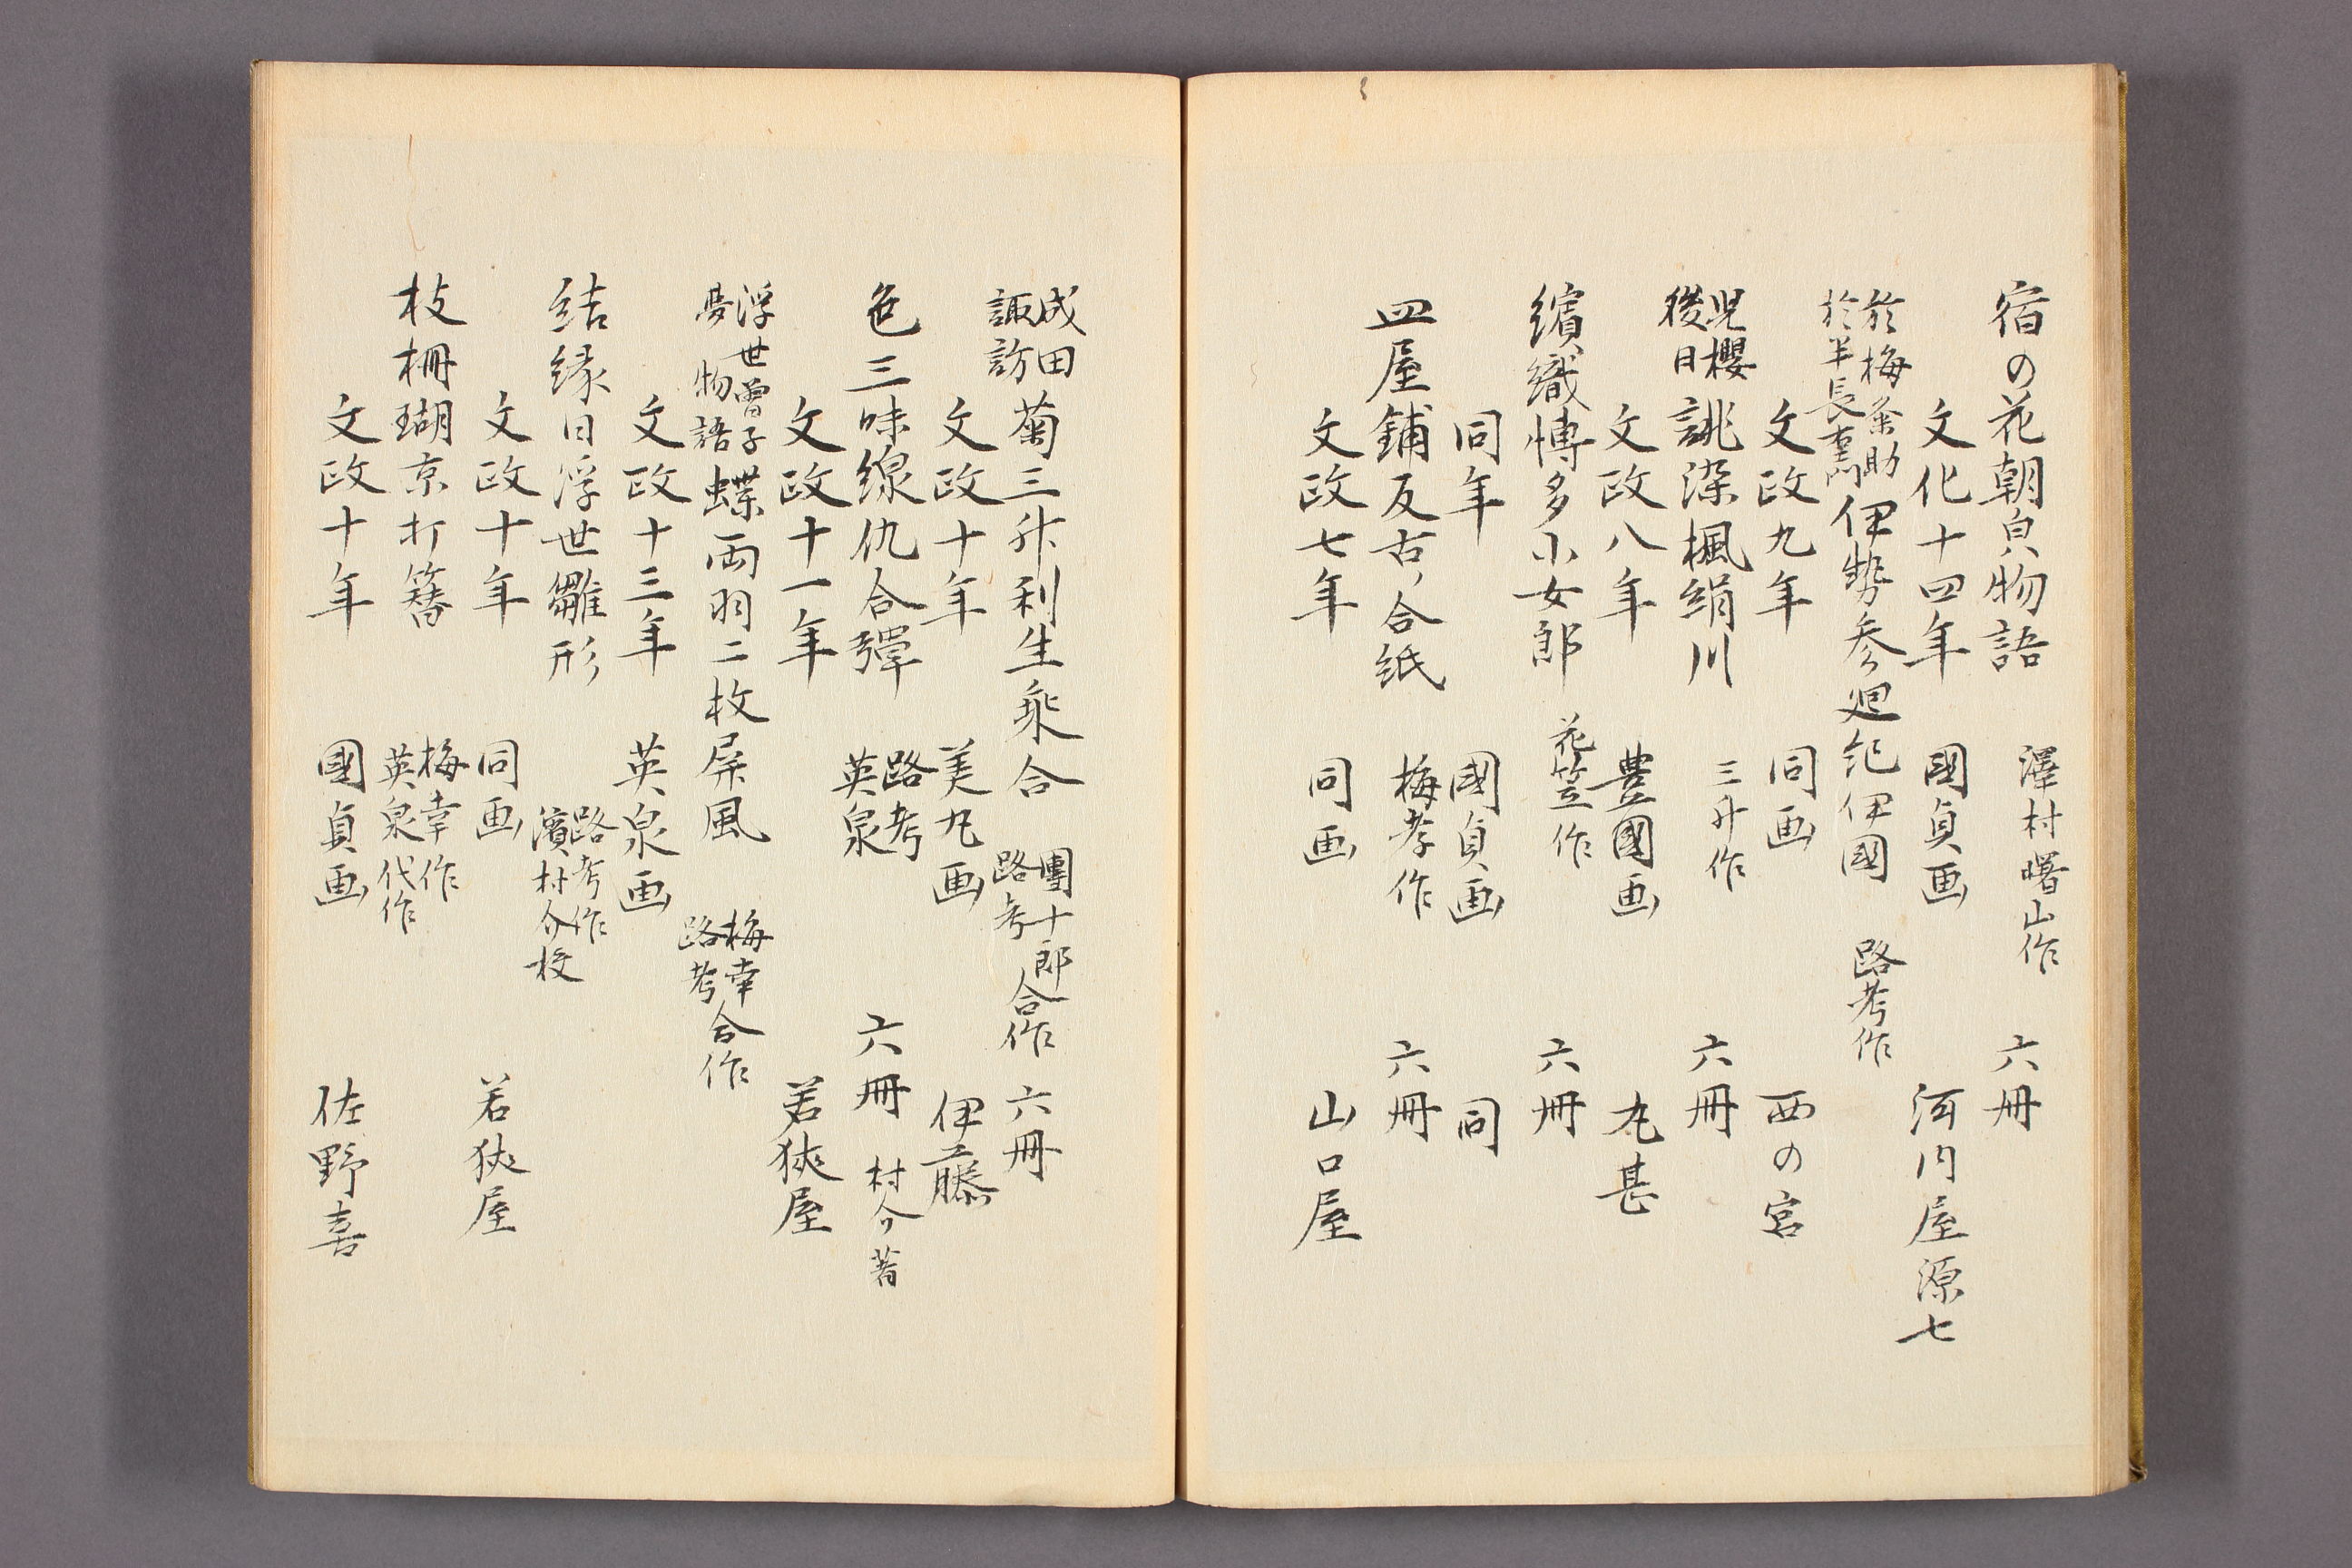 宿の花朝皃物語　澤村曙山作　六冊
文化十四年　國貞画　河内屋源七
於梅粂助
於半長右衛門
伊勢参廻紀伊國　路考作
文政九年　同画　西の宮
児櫻
後日
誂染楓絹川　三升作　六冊
文政八年　豊國画　丸甚
繽織博多小女郎　花笠作　六冊
同年　國貞画　同
皿屋鋪反古ノ合紙　梅孝作　六冊
文政七年　同画　山口屋
成田
諏訪
菊三升利生乘合　團十郎
路考
合作　六冊
文政十年　美丸画　伊藤
色三味線仇合彈　路考
英泉
六冊　村介著
文政十一年　若狹屋
浮世曽子
夢物語
蝶両羽二枚屏風　梅幸
路考
合作
文政十三年　英泉画
結縁日浮世雛形　路考作
濱村介校
文政十年　同画　若狹屋
枝柵瑚京打簪　梅幸作
英泉代作
文政十年　國貞画　佐野喜